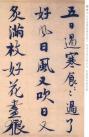 五日過寒食過了
好風日風又吹日又
炙滿枝好花盡狼